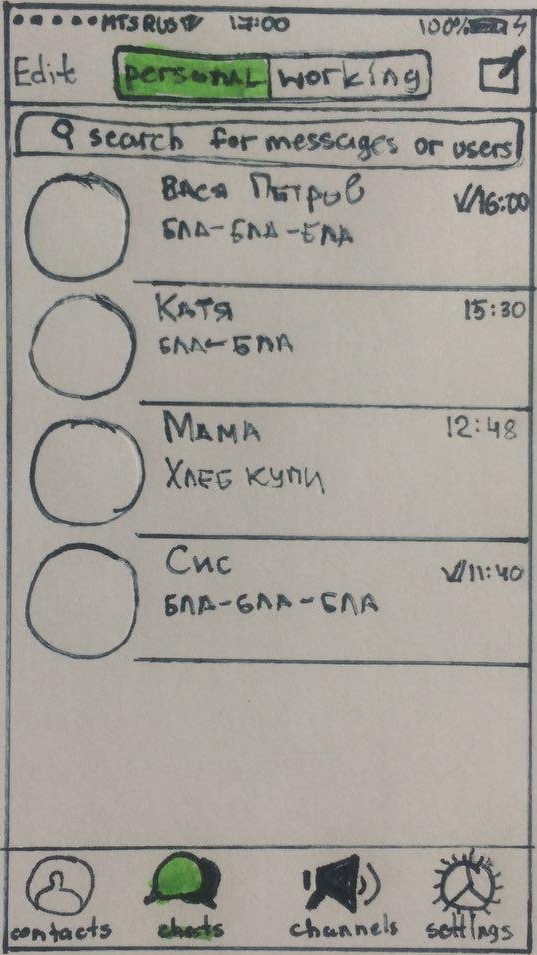 MTS RUS 17:00 100%
Edit personal working
search for messages or users
Вася Петров √/16:00
бла-бла-бла
Катя 15:30
бла-бла
Мама 12:48
Хлеб купи
Сис √/11:40
бла-бла-бла
contacts chats channels settings